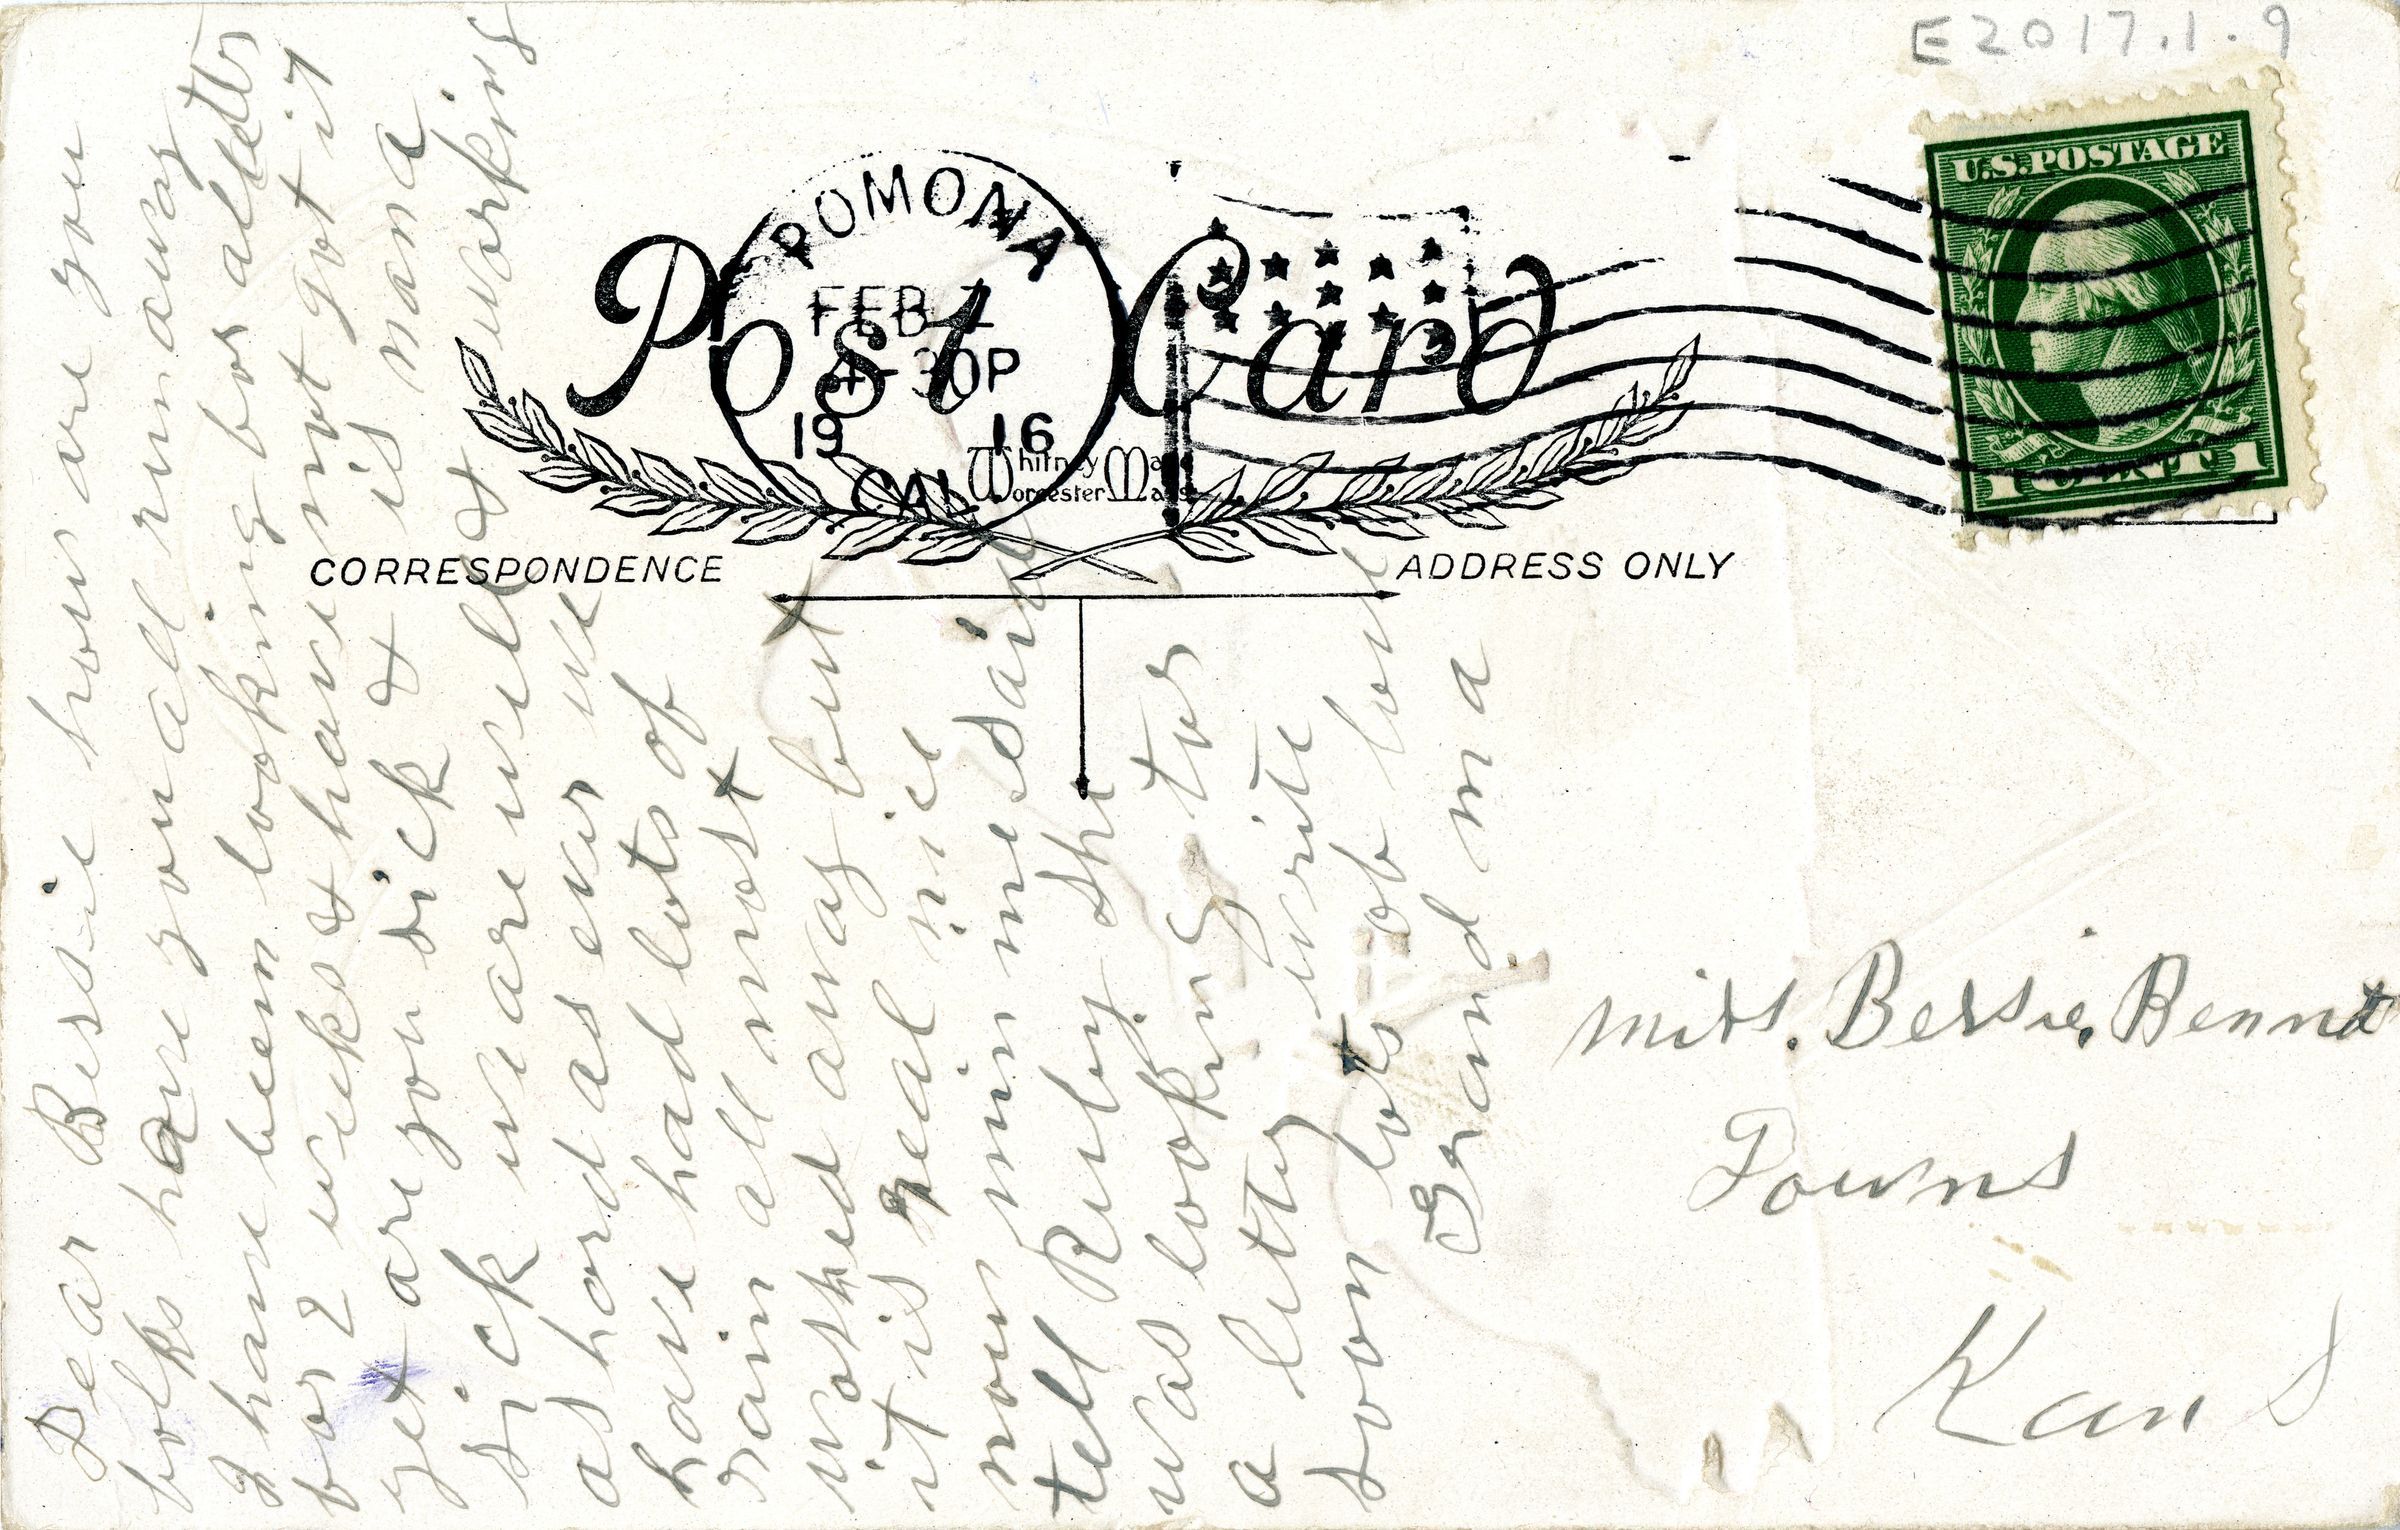 E2017.1.9
U.S. POSTAGE
1 CENT 1
POMONA
FEB 7
4-30P
19 16
CAL
Post Card
Whitney Made
Worcester Mass
CORRESPONDENCE
ADDRESS ONLY
Dear Bessie how are you
folks have you all runaway
I have been looking for a letter
for 2 weeks & have not got it
yet are you sick & is mama
sick we are well & working
as hard as ever we
have had lots of
rain all most
washed away but
it is real nice
now min me said
tell Ruby she
was looking for
a letter write
soon lots of love
Grand ma
Miss. Bessie. Bennet
Towns
Kans